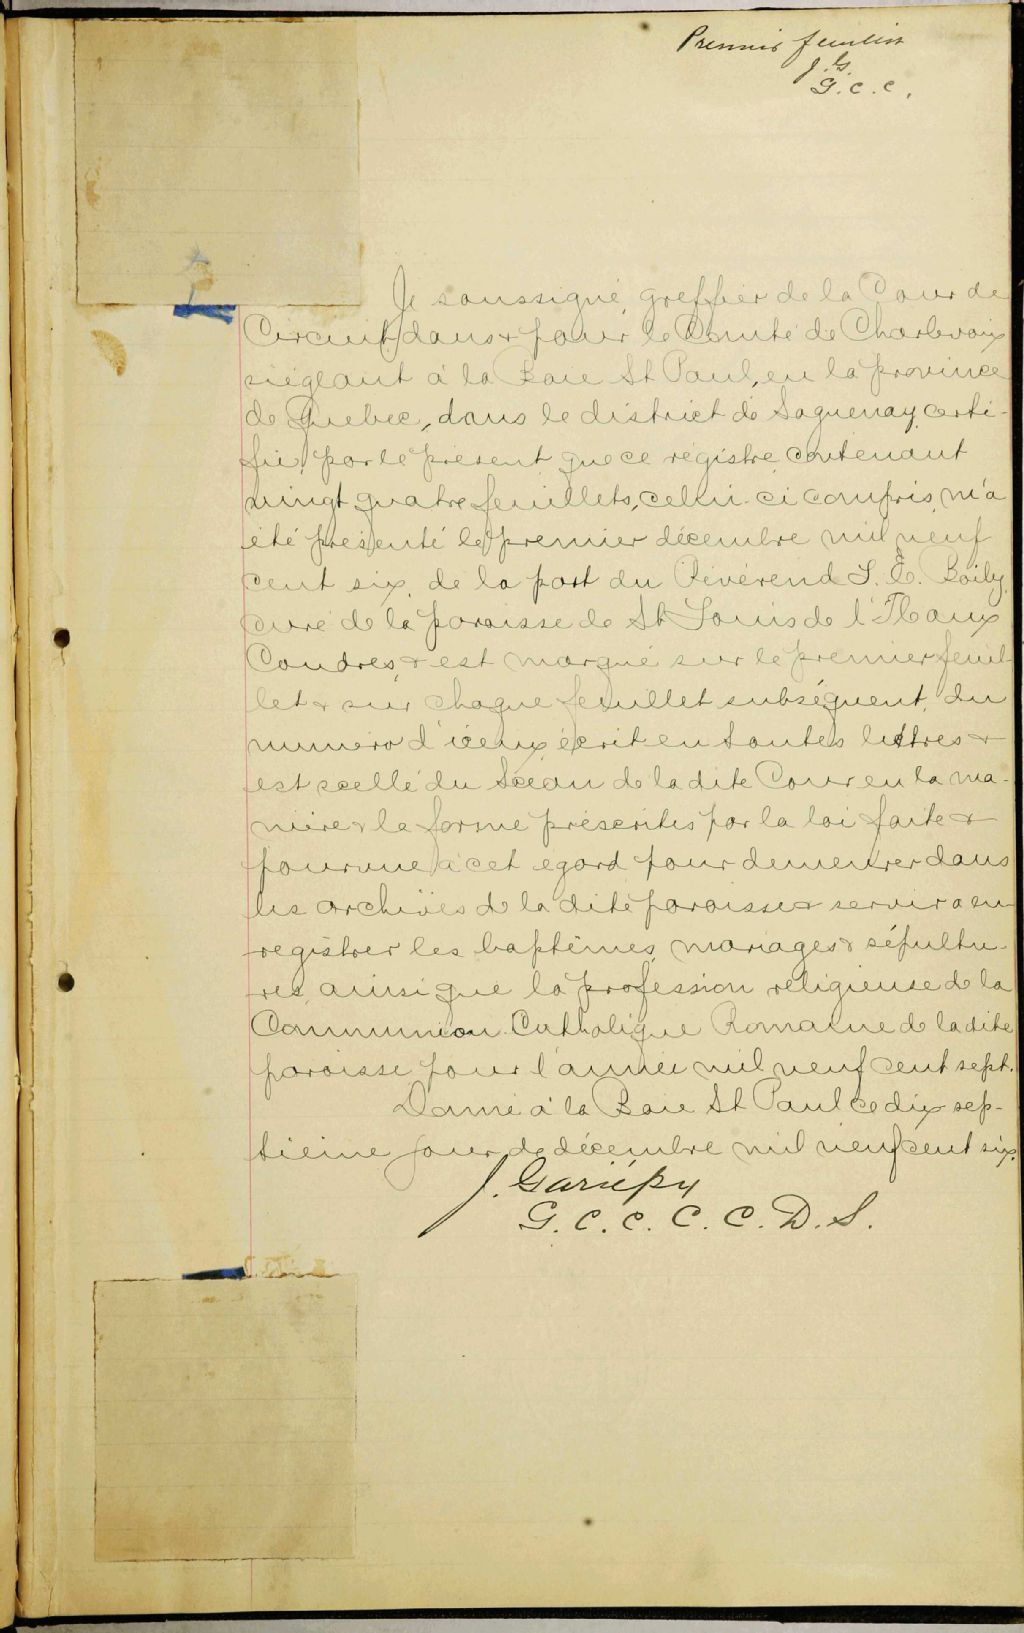 Premier feuillet
J. G.
G. C. C.
Je soussigné, greffier de la Cour de
Circuit, dans & pour le Comté de Charlevoix
siégeant à la Baie St Paul, en la province
de Quebec, dans le district de Saguenay, certi-
fie, par le présent que ce régistre contenant
vingt quatre feuillets, celui-ci compris, m'a
été présenté le premier décembre mil neuf
cent six, de la part du Révérend J. E. Boily,
curé de la paroisse de St Louis de l'Ile aux
Coudres, & est marqué sur le premier feuil-
let & sur chaque feuillet subséquent, du
numéro d'iceux écrit en toutes lettres &
est scellé du Scéau de la dite Cour en la ma-
nière & la forme préscrites par la loi faite &
pourvue à cet egard pour demeurer dans
les archives de la dite paroisse & servir a en-
registrer les baptêmes, mariages & sépultu-
res, ainsi que la profession religieuse de la
Communion Catholique Romaine de la dite
paroisse pour l'année mil neuf cent sept.
Donné à la Baie St Paul ce dix sep-
tième jour de décembre mil neuf cent six.
J. Gariépy
G. C. C. C. C. D. S.